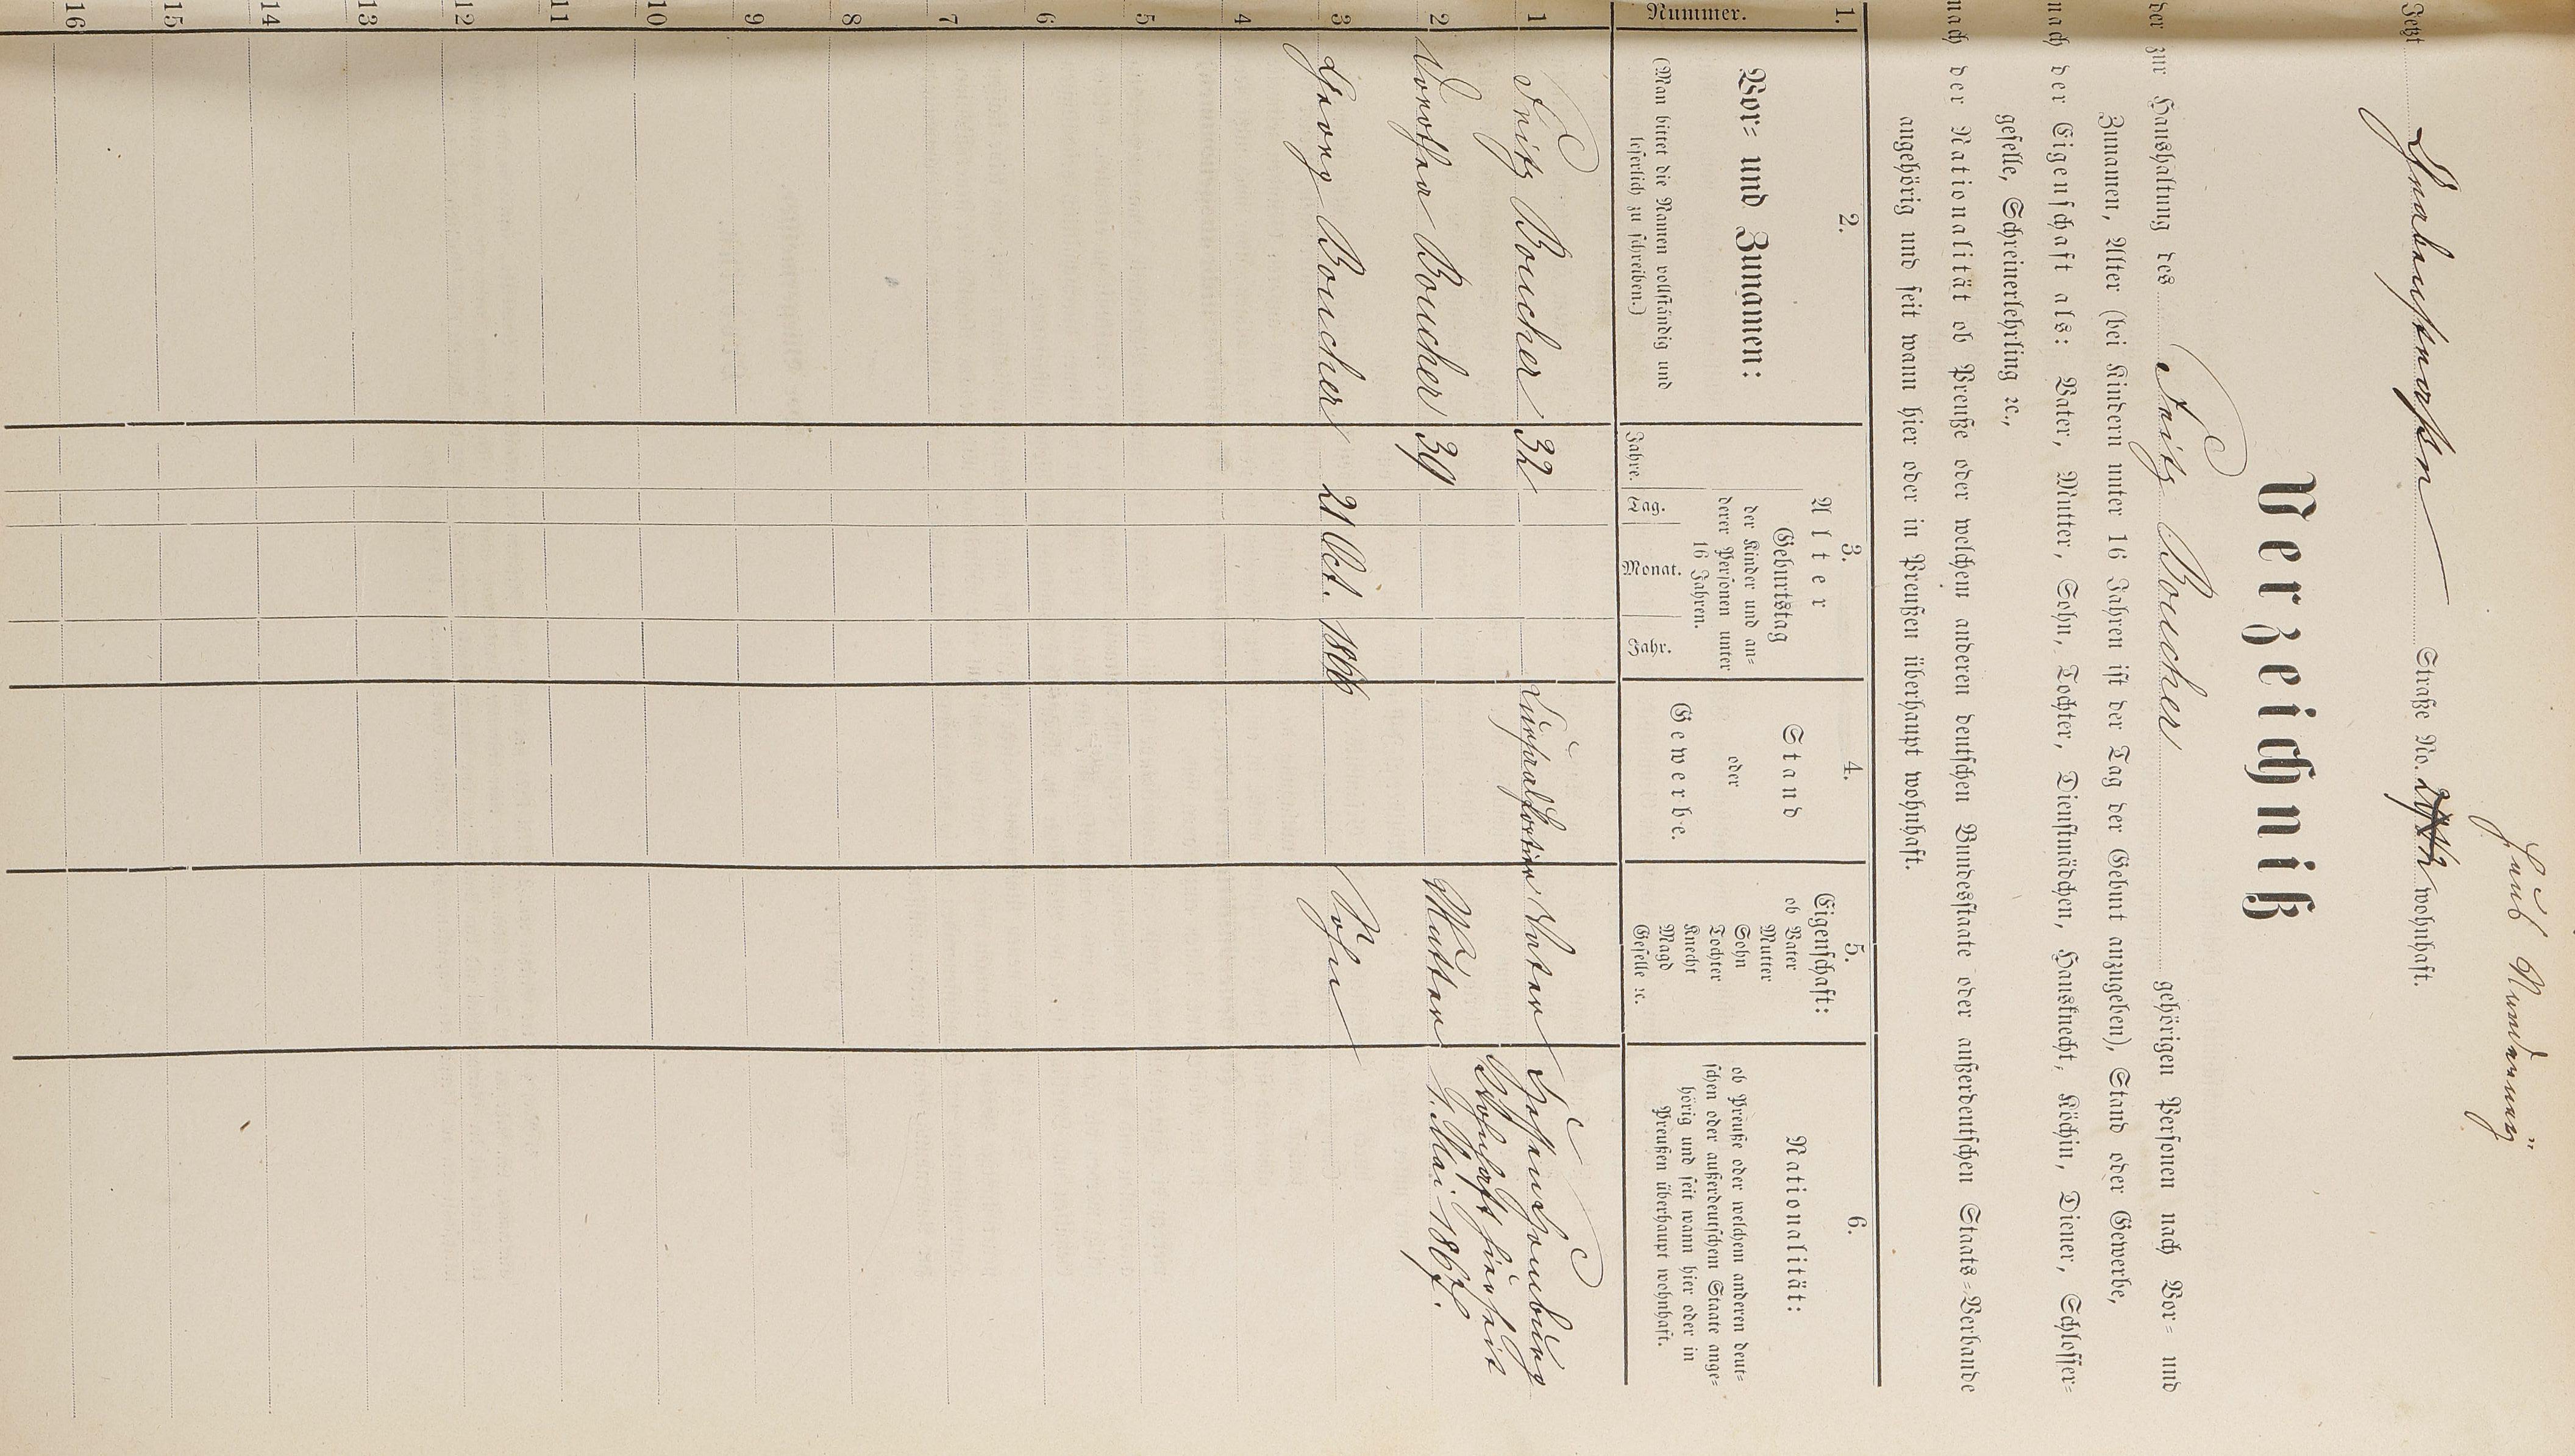 Haus Nundenung
Jetzt Grabenstraße Straße No. 2 wohnhaft.
Verzeichniß
der zur Haushaltung des Fritz Boucher gehörigen Personen nach Vor= und
Zunamen, Alter (bei Kindern unter 16 Jahren ist der Tag der Geburt anzugeben), Stand oder Gewerbe,
nach der Eigenschaft als: Vater, Mutter, Sohn, Tochter, Dienstmädchen, Hausknecht, Köchin, Diener, Schlosser=
geselle, Schreinerlehrling ꝛc.,
nach der Nationalität ob Preuße oder welchem anderen deutschen Bundesstaate oder außerdeutschen Staats=Verbande
angehörig und seit wann hier oder in Preußen überhaupt wohnhaft.
1. 2. 3. 4. 5. 6.
Nummer.
Vor= und Zunamen:
(Man bittet die Namen vollständig und
leserlich zu schreiben.)
Alter
Geburtstag
der Kinder und an=
derer Personen unter
16 Jahren.
Jahre. Tag. Monat. Jahr.
Stand
oder
Gewerbe.
Eigenschaft:
ob Vater
Mutter
Sohn
Tochter
Knecht
Magd
Geselle ꝛc.
Nationalität:
ob Preuße oder welchem anderen deut=
schen oder außerdeutschem Staate ange=
hörig und seit wann hier oder in
Preußen überhaupt wohnhaft.
1 Fritz Boucher 32 Kursaalportier Vater Hessenhomburg
Wohnhaft hier seit
2 Dorothea Boucher 39 Mutter 1. Mai 1867.
3 Georg Boucher 21 Oct. 1866 Sohn
4
5
6
7
8
9
10
11
12
13
14
15
16